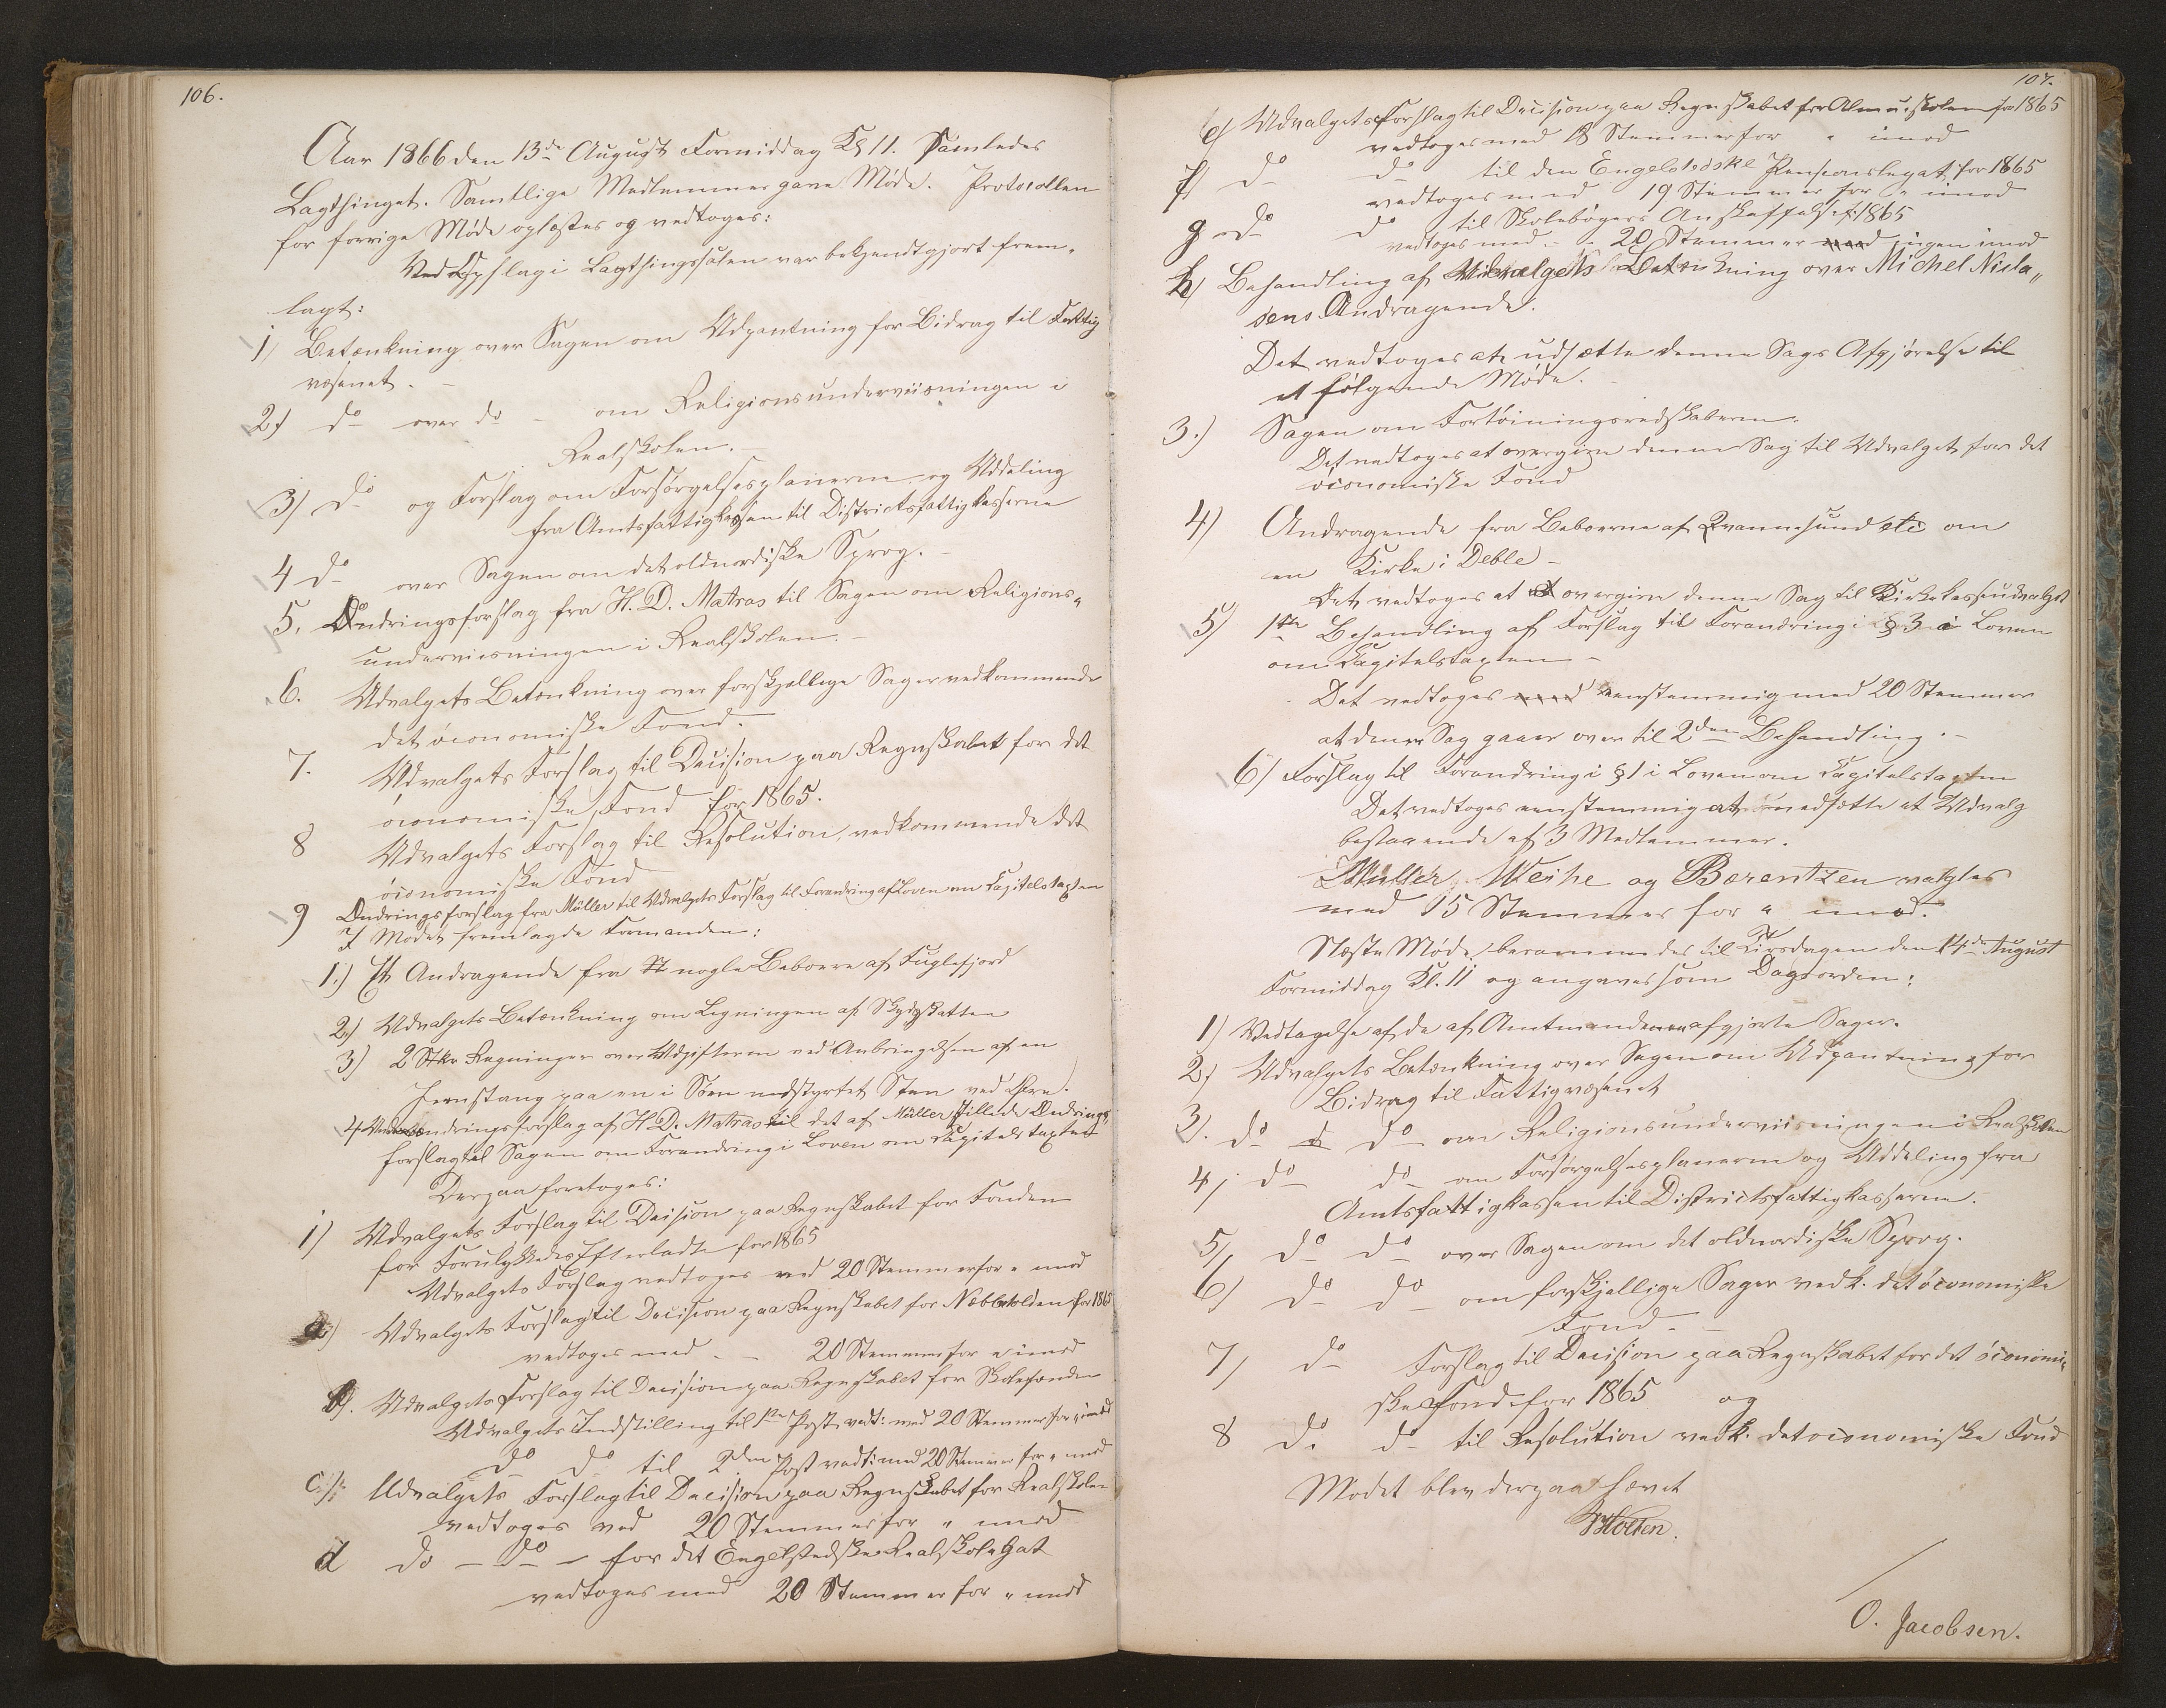 106.
Aar 1866 den 13de August Formiddag Kl 11. Samledes
Lagthinget. Samtlige Medlemmer gave Møde. Protocollen
for forrige Møde oplæstes og vedtoges:
Ved Opslag i Lagthingssalen var bekjendtgjort frem-
lagt:
1) Betænkning over Sagen om Udpantning for Bidrag til Fattig
væsenet. –
2) do over do – om Religionsunderviisningen i
Realskolen.
3) do og Forslag om Forsørgelsesplanerne og Uddeling
fra Amtsfattigkassen til Districtsfattigkasserne
4 do over Sagen om det oldnordiske Sprog. –
5. Ændringsforslag fra H. D. Matras til Sagen om Religions-
underviisningen i Realskolen. –
6. Udvalgets Betænkning over forskjellige Sager vedkommende
det öconomiske Fond. –
7. Udvalgets Forslag til Decision paa Regnskabet for det
öconomiske Fond for 1865.
8 Udvalgets Forslag til Resolution, vedkommende det
öconomiske Fond
9 Ændringsforslag fra Müller til Udvalgets Forslag til Forandring af Loven om Kapitelstaxten
I Mødet fremlagde Formanden:
1.) Et Andragende fra nogle Beboere af Fuglefjord
2.) Udvalgets Betænkning om Ligningen af Skydsskatten
3) 2 Stkr Regninger over Udgifterne ved Anbringelsen af en
Jernstang paa en i Söen nedstyrtet Sten ved
4 Underændringsforslag af H. D. Matras til det af Müller stillede Ændrings-
forslag til Sagen om Forandring i Loven om Kapitelstaxten
Derpaa foretoges:
1) Udvalgets Forslag til Decision paa Regnskabet for Fonden
for Forulykkedes Efterladte for 1865
Udvalgets Forslag vedtoges ved 20 Stemmer for " imod
a) Udvalgets Forslag til Decision paa Regnskabet for Næbbetolden for 1865
vedtoges med – – 20 Stemmer for " imod
b). Udvalgets Forslag til Decision paa Regnskabet for Skolefonden
Udvalgets Indstilling til 1ste Post vedt: med 20 Stemmer for " imod
do do til 2den Post vedt: med 20 Stemmer for " imod
c.): Udvalgets Forslag til Decision paa Regnskabet for Realskolen
vedtoges ved 20 Stemmer for " imod
d do – do – for det Engelstedske Realskolelegat
vedtoges med 20 Stemmer for " imod
107.
e) Udvalgets Forslag til Decision paa Regnskabet for Almueskolen for 1865
vedtoges med 18 Stemmer for " imod
f) do do til den Engelstedske Pensionslegat for 1865
vedtoges med 19 Stemmer for " imod
g do do til Skolebøgers Anskaffelse f: 1865
vedtoges med – – 20 Stemmer ingen imod
h) Behandling af Udvalgets Betænkning over Michel Niela-
sens Andragende.
Det vedtoges at udsætte denne Sags Afgjørelse til
et følgende Møde. –
3.) Sagen om Fortøiningsredskaberne.
Det vedtoges at overgive denne Sag til Udvalget for det
öconomiske Fond
4) Andragende fra Beboerne af Qvannesund etc om
en Kirke i Deble –
Det vedtoges at overgive denne Sag til Kirkekasseudvalget
5) 1ste Behandling af Forslag til Forandring i § 3 i Loven
om Kapitelstaxten –
Det vedtoges eenstemmig med 20 Stemmer
at denne Sag gaaer over til 2den Behandling. –
6) Forslag til Forandring i § 1 i Loven om Kapitelstaxten
Det vedtoges eenstemmig at nedsætte et Udvalg
bestaaende af 3 Medlemmer.
Müller, Weihe og Bærentzen valgtes
med 15 Stemmer for " imod.
Næste Møde berammedes til Tirsdagen den 14de August
Formiddag Kl. 11 og angaves som Dagsorden:
1) Vedtagelse af de af Amtmanden afgjorte Sager.
2) Udvalgets Betænkning over Sagen om Udpantning for
Bidrag til Fattigvæsenet
3. do do om Religionsunderviisningen i Realskolen
4) do do om Forsørgelsesplanerne og Uddeling fra
Amtsfattigkassen til Districtsfattigkasserne.
5) do do over Sagen om det oldnordiske Sprog.
6) do do om forskjellige Sager vedk. det öconomiske
Fond. –
7) do Forslag til Decision paa Regnskabet for det öconomi-
ske Fond for 1865 og
8 do do til Resolution vedk. det öconomiske Fond
Mødet blev derpaa hævet
Holten.
O. Jacobsen.